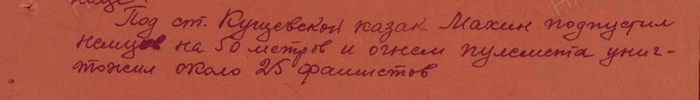 Под ст. Кущевской казак Махин подпустил
немцов на 50 метров и огнем пулемета униг-
тожил около 25 фашистов